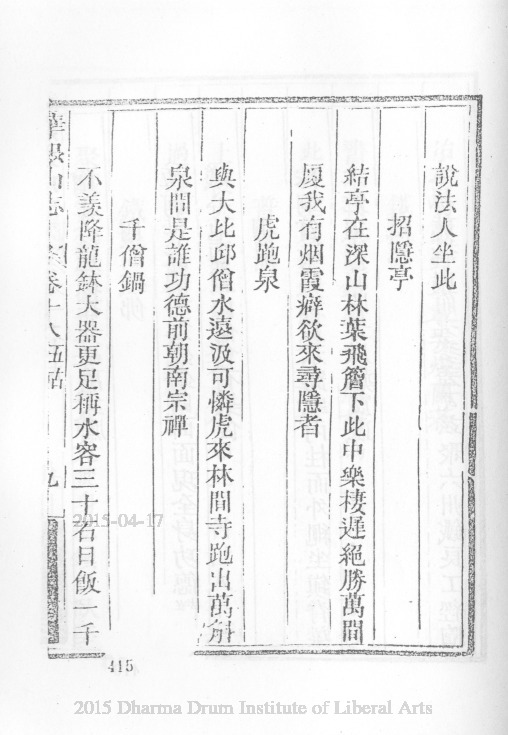 說法人坐此
招隱亭
結亭在深山林葉飛簷下此中樂棲遲絕勝萬間
廈我有烟霞癖欲來尋隱者
虎跑泉
與大比邱僧水遠汲可憐虎來林間寺跑出萬斛
泉問是誰功德前朝南宗禪
千僧鍋
不羨降龍鉢大器更足稱水容三十石日飯一千
山志 卷十八
415
2015-04-17
2015 Dharma Drum Institute of Liberal Arts